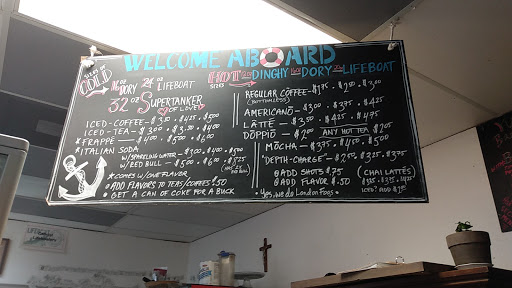 WELCOME ABOARD
SIZES OF
COLD
16oz DORY 24oz LIFEBOAT
32oz SUPERTANKER
OF LOVE
ICED-COFFEE-$3.00.$4.25.$5.00
ICED-TEA-$3.00.$3.50.$4.00
*FRAPPÉ-$4.00.$5.00.$6.00
*ITALIAN SODA
W/SPARKLING WATER-$3.00.$4.00.$5.00
W/RED BULL-$5.00.$6.00
*COMES W/ONE FLAVOR
ADD FLAVORS TO TEAS/COFFEES $.50
GET A CAN OF COKE FOR A BUCK
HOT DINGHY DORY LIFEBOAT
SIZES
REGULAR COFFEE-$1.75.$2.50.$3.00
(BOTTOMLESS)
AMERICANO-$3.00.$3.75.$4.25
LATTÉ-$3.50.$4.25.$4.75
DOPPIO-$2.00 ANY HOT TEA $2.05
MOCHA-$3.75.$4.50.$5.00
"DEPTH-CHARGE"-$2.75.$3.25.$3.75
ADD SHOTS $.75 (CHAI LATTÉS)
ADD FLAVOR $.50
Yes, we do London Fogs.